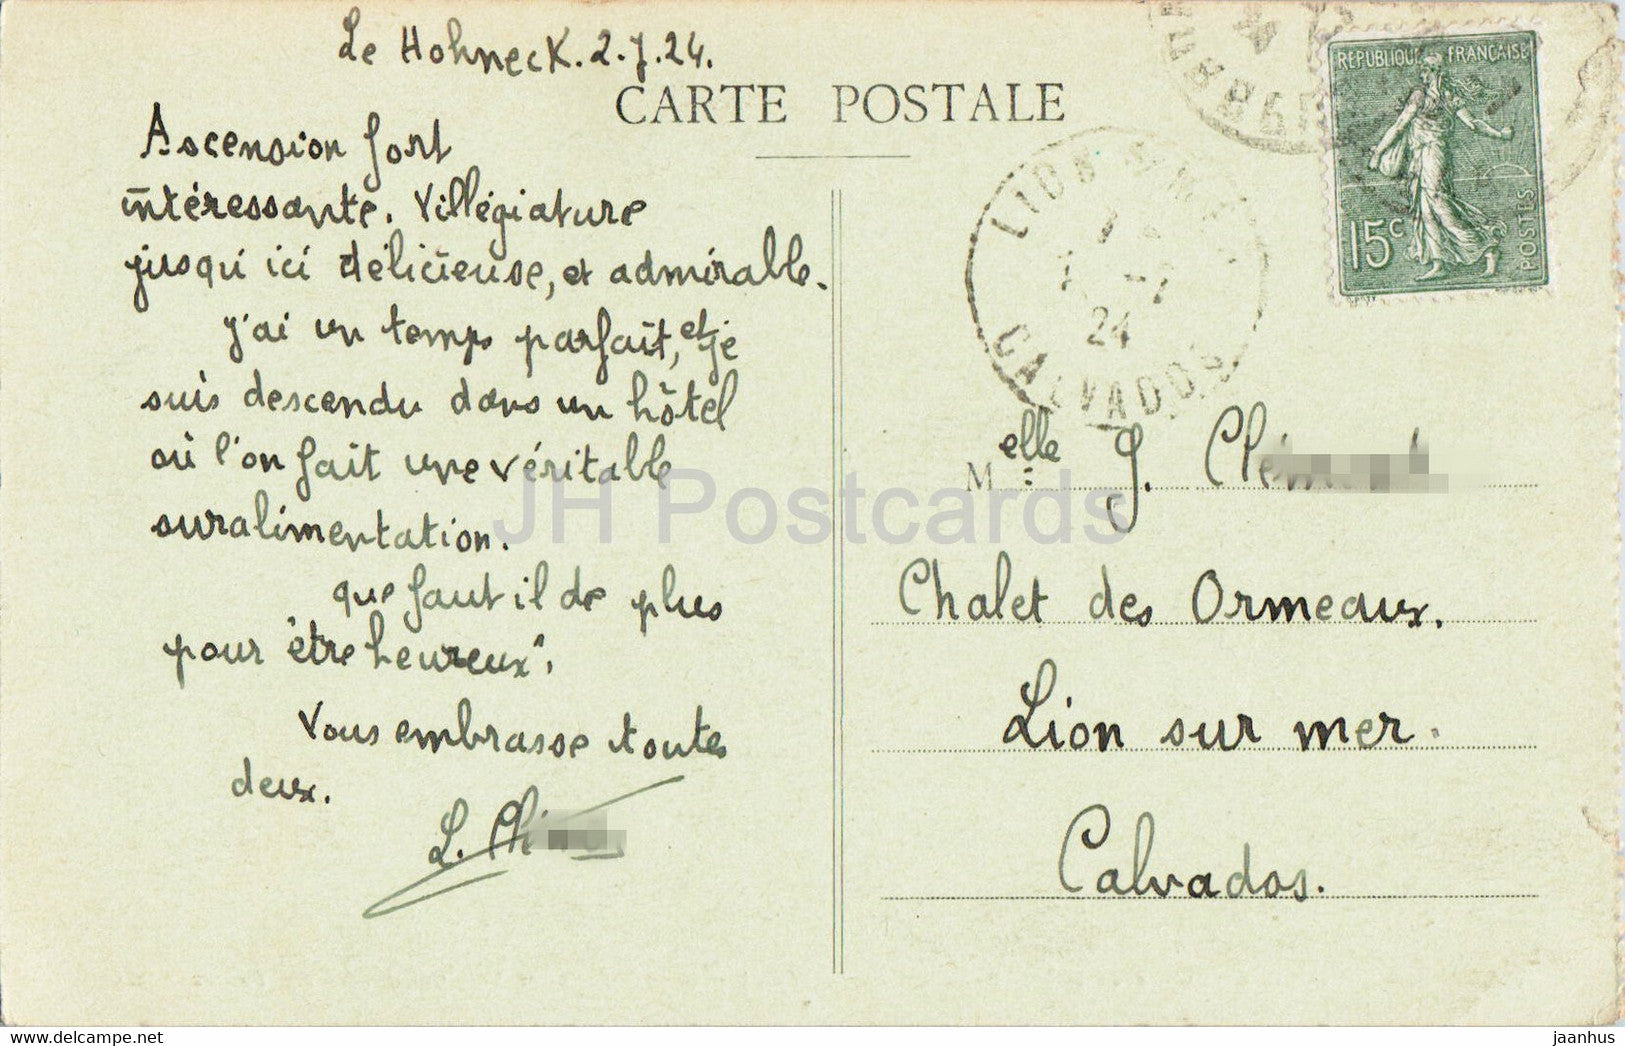 Le Hohneck. 2.7.24.
CARTE POSTALE
Ascension fort
intéressante. Villégiature
jusqu'ici délicieuse, et admirable.
j'ai un temps parfait, et je
suis descendu dans un hôtel
où l'on fait une véritable
suralimentation.
que faut il de plus
pour "être heureux".
Vous embrasse toutes
deux.
L.
REPUBLIQUE FRANÇAISE
15c
POSTES
CALVADOS
24
Melle J.
Chalet des Ormeaux.
Lion sur mer.
Calvados.
JH Postcards
www.delcampe.net
jaanhus